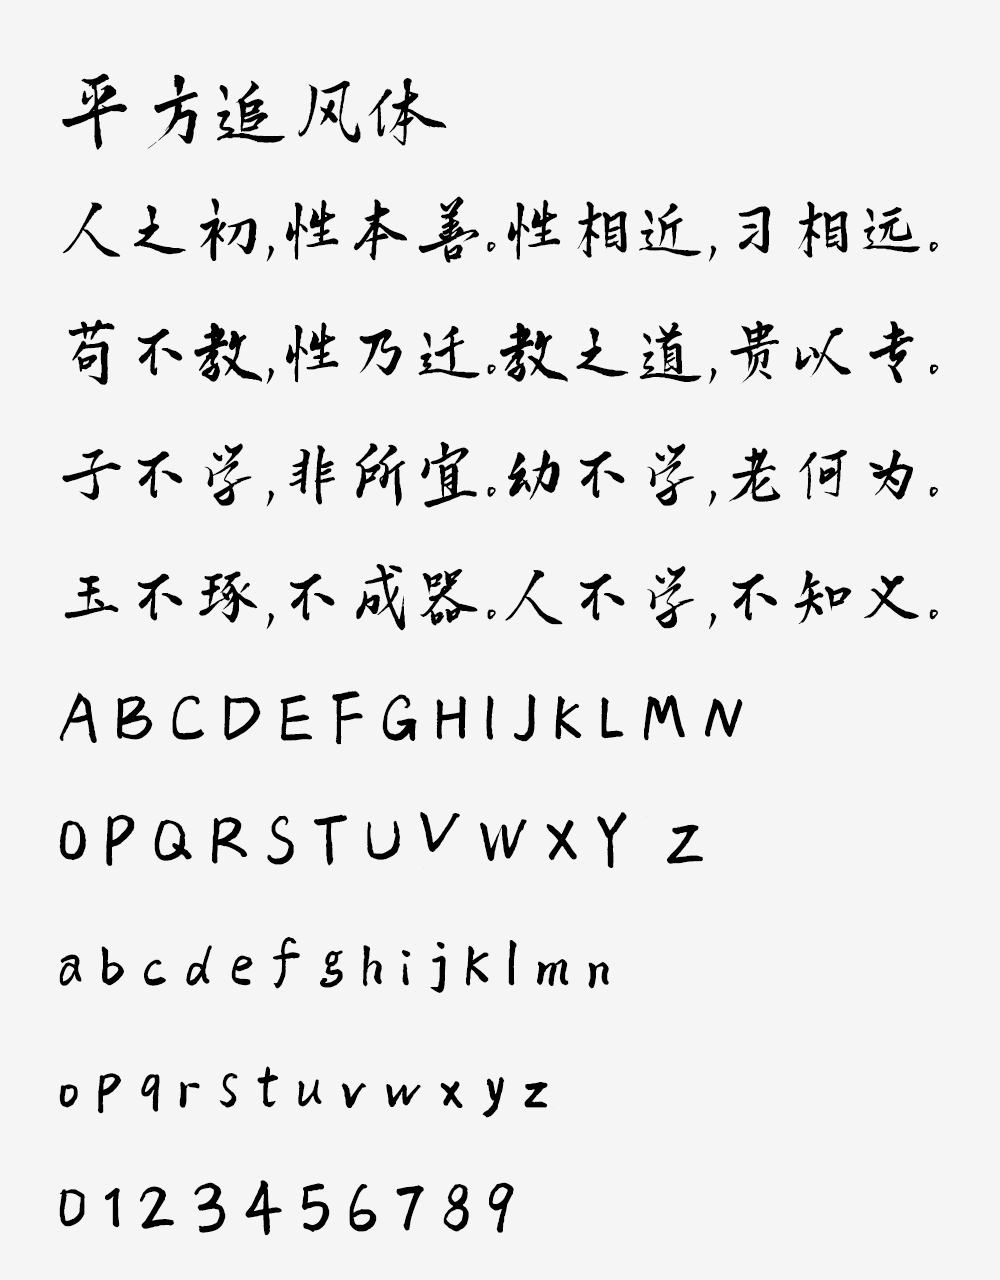 平方追风体
人之初,性本善。性相近,习相远。
苟不教,性乃迁。教之道,贵以专。
子不学,非所宜。幼不学,老何为。
玉不琢,不成器。人不学,不知义。
ABCDEFGHIJKLMN
OPQRSTUVWXYZ
abcdefghijklmn
opqrstuvwxyz
0123456789